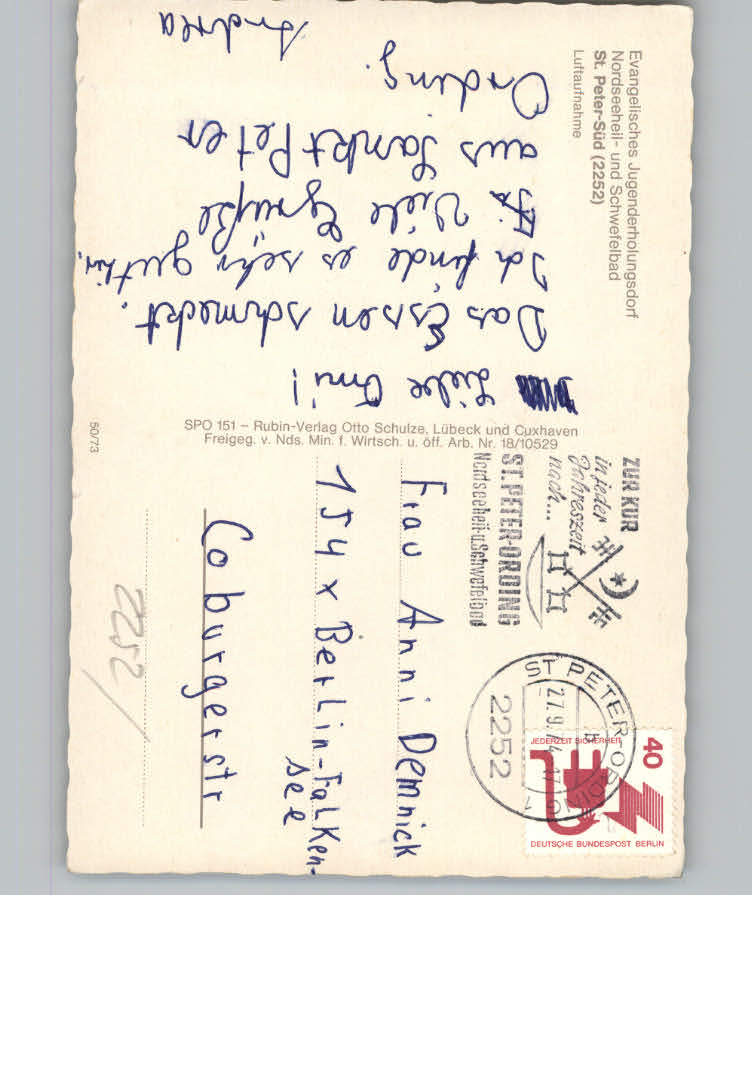 Evangelisches Jugenderholungsdorf
Nordseeheil- und Schwefelbad
St. Peter-Süd (2252)
Luftaufnahme
Liebe Omi!
Das Essen schmeckt.
Ich finde es sehr gut hir.
Viele Grüße
aus Sankt Peter
Ording.
Andrea
50/73
SPO 151 – Rubin-Verlag Otto Schulze, Lübeck und Cuxhaven
Freigeg. v. Nds. Min. f. Wirtsch. u. öff. Arb. Nr. 18/10529
ZUR KUR
in jeder
Jahreszeit
nach...
ST. PETER-ORDING
Nordseeheil-u.Schwefelbad
ST PETER-ORDING 1
27.9.74-17
2252
40
JEDERZEIT SICHERHEIT
DEUTSCHE BUNDESPOST BERLIN
Frau Anni Demnick
154 x Berlin-Falken-
see
Coburgerstr
2252